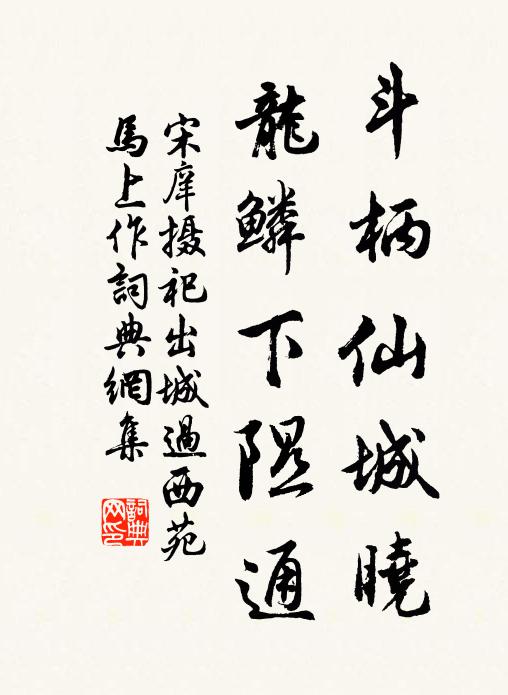 斗柄仙城曉
龍鱗下隰通
宋庠摄祀出城過西苑
馬上作詞典網集
詞典网印